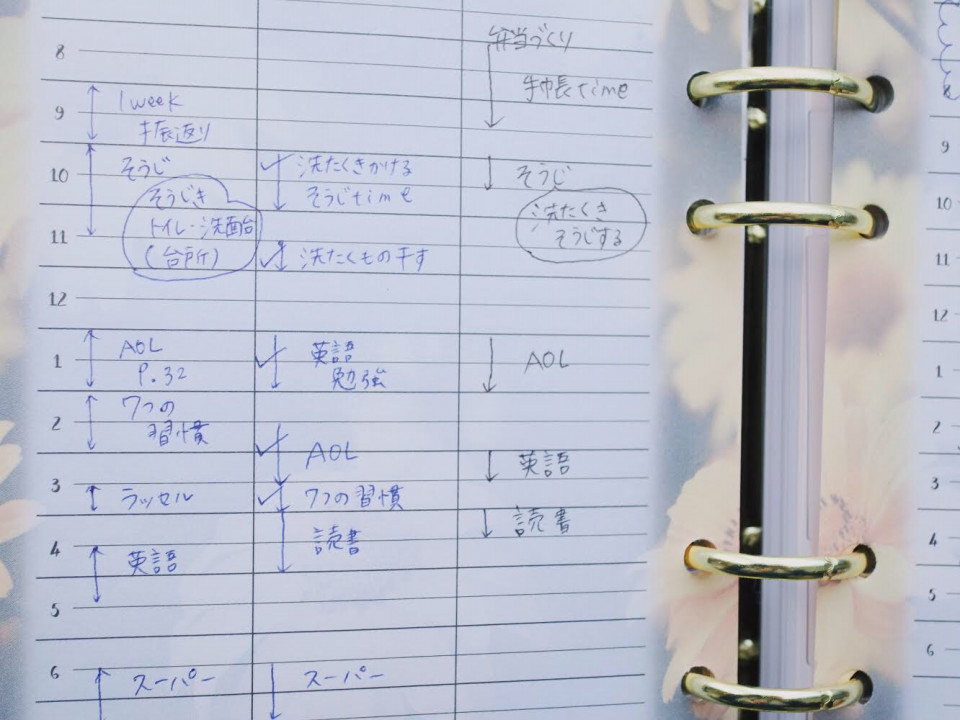 8
9
10
11
12
1
2
3
4
5
6
1week
振返り
そうじ
そうじき
トイレ・洗面台
(台所)
AOL
P.32
7つの
習慣
ラッセル
英語
スーパー
洗たくきかける
そうじtime
洗たくもの干す
英語
勉強
AOL
7つの習慣
読書
スーパー
弁当づくり
手帳time
そうじ
洗たくき
そうじする
AOL
英語
読書
8
9
10
11
12
1
2
3
4
5
6